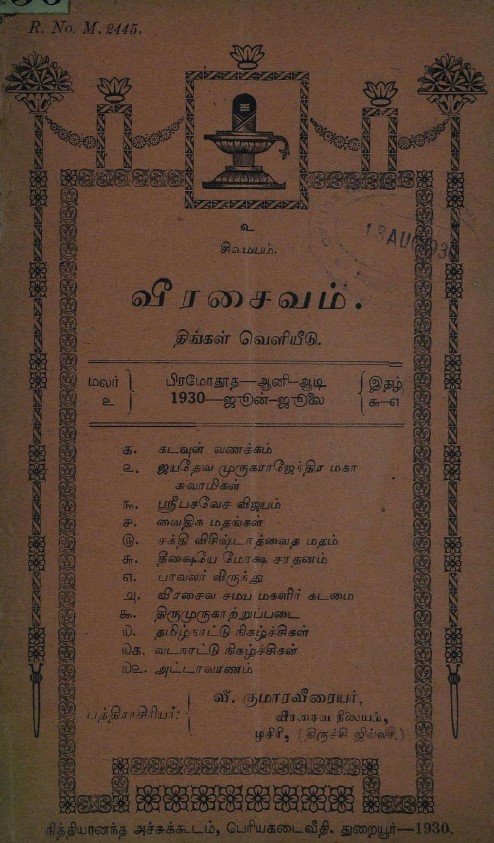 R. No. M. 2445.
உ
சிவமயம்.
13 AUG 193
வீரசைவம்.
திங்கள் வெளியீடு.
மலர் உ } பிரமோதூத—ஆனி–ஆடி { இதழ்
1930—ஜூன்–ஜூலை சு–எ
க. கடவுள் வணக்கம்
உ. ஜயதேவ முருகராஜேந்திர மகா
சுவாமிகள்
ந. ஸ்ரீபசவேச விஜயம்
ச. வைதிக மதங்கள்
ரு. சக்தி விசிஷ்டாத்வைத மதம்
சு. தீக்ஷையே மோக்ஷ சாதனம்
எ. பாவலர் விருந்து
அ. வீரசைவ சமய மகளிர் கடமை
கூ. திருமுருகாற்றுப்படை
ய. தமிழ்நாட்டு நிகழ்ச்சிகள்
யக. வடநாட்டு நிகழ்ச்சிகள்
யஉ. அட்டாவரணம்
பத்திராசிரியர்: வீ. குமாரவீரையர்,
வீரசைவ நிலையம்,
முசிரி, (திருச்சி ஜில்லா.)
நித்தியானந்த அச்சுக்கூடம், பெரியகடைவீதி. துறையூர்—1930.